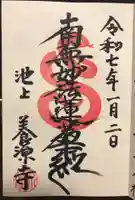 令和七年一月二日
南無妙法蓮華経
池上